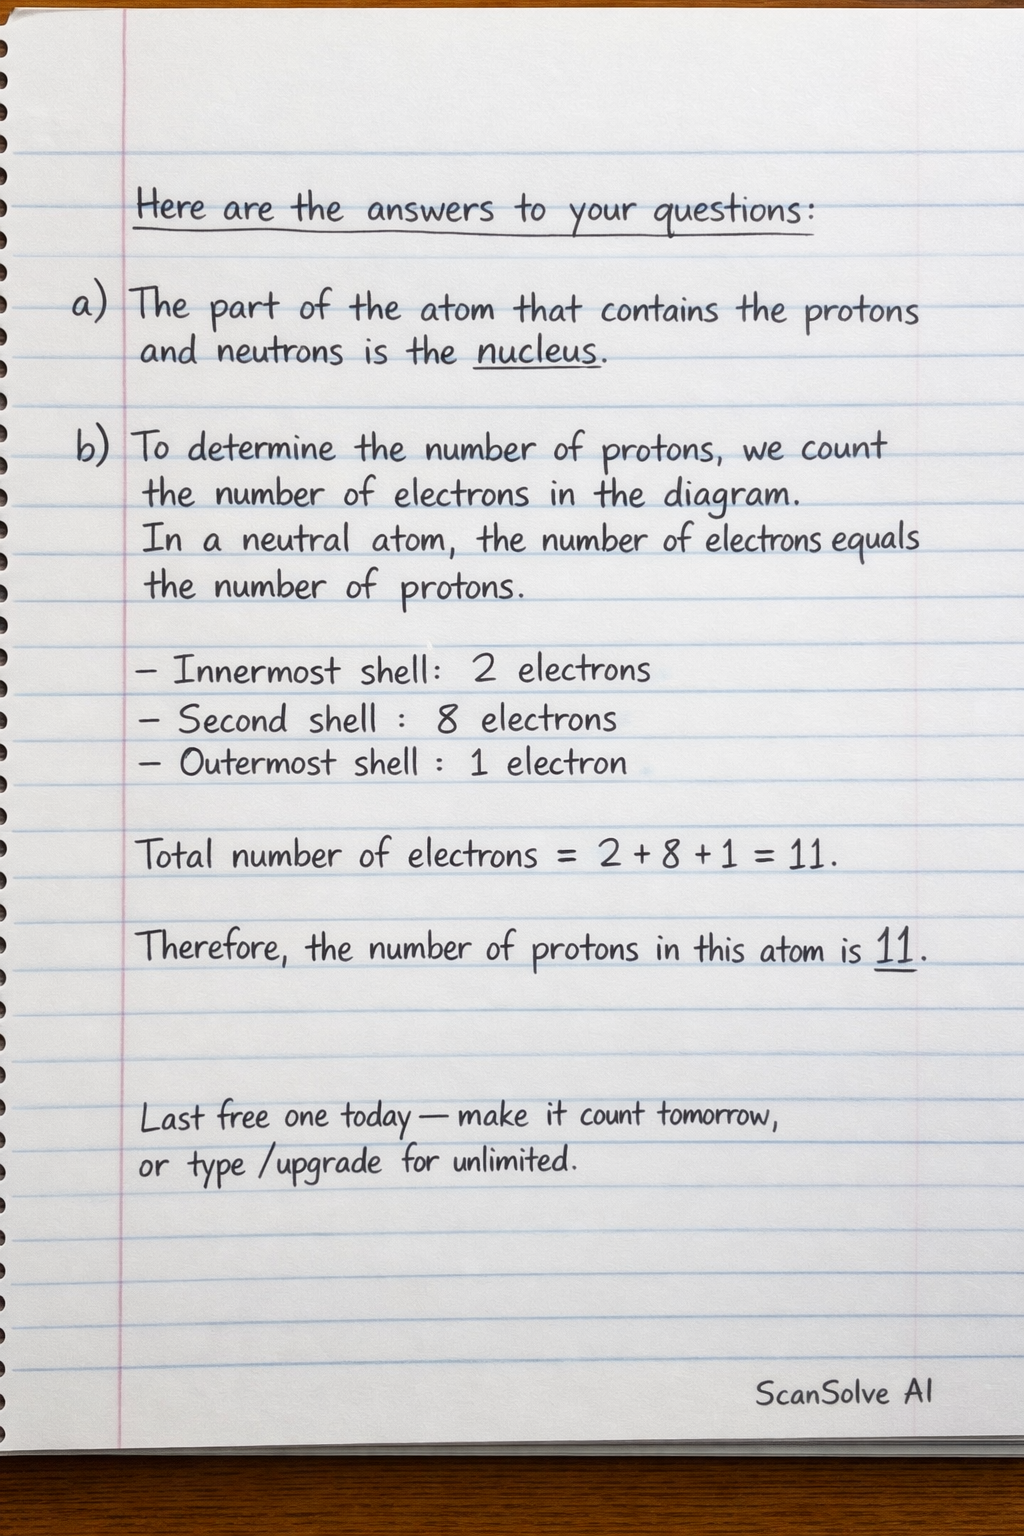 Here are the answers to your questions:
a) The part of the atom that contains the protons
and neutrons is the nucleus.
b) To determine the number of protons, we count
the number of electrons in the diagram.
In a neutral atom, the number of electrons equals
the number of protons.
– Innermost shell: 2 electrons
– Second shell : 8 electrons
– Outermost shell : 1 electron
Total number of electrons = 2 + 8 + 1 = 11.
Therefore, the number of protons in this atom is 11.
Last free one today — make it count tomorrow,
or type /upgrade for unlimited.
ScanSolve AI